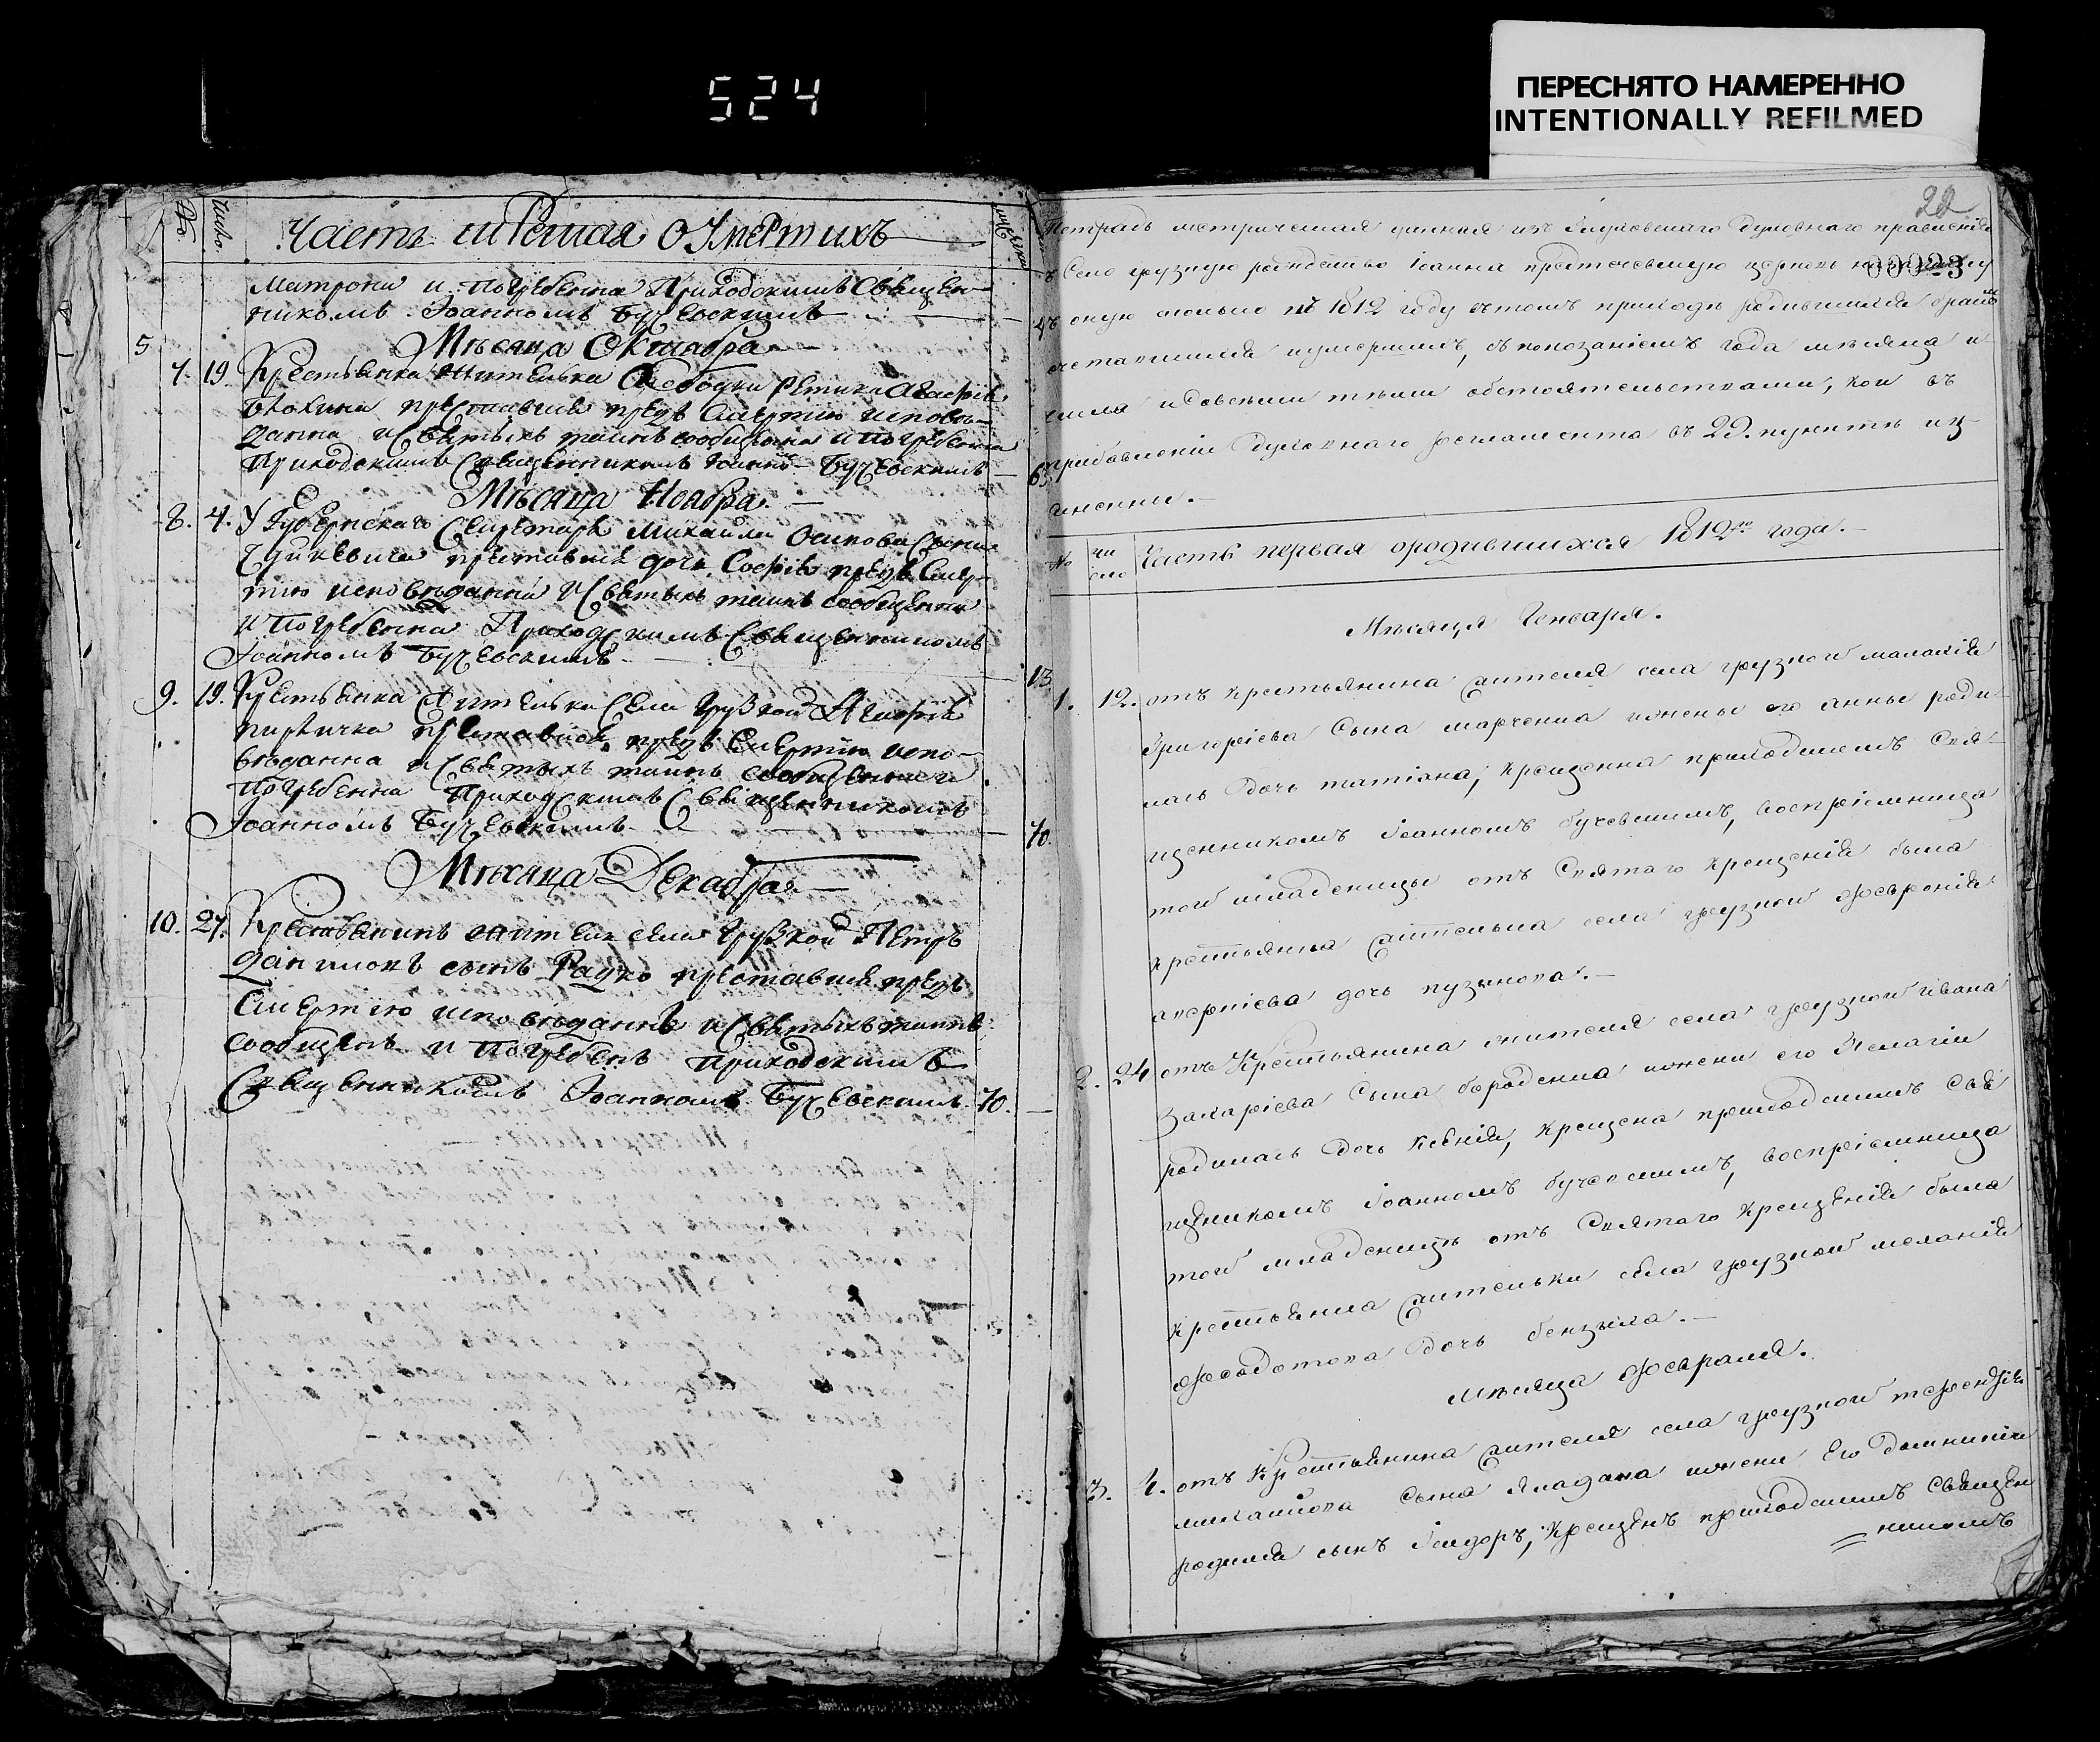 524
ПЕРЕСНЯТО НАМЕРЕННО
INTENTIONALLY REFILMED
№ число Часть третая о умертихъ
Матрона и погребенна Приходскимъ Священ-
никомъ Іоанномъ Бучевскимъ
5
Мѣсяца Октиабра
7. 19. Крестьянка жителька Агафія
преставися предъ Смертію исповѣ-
данна и Святыхъ таинъ сообщенна и погребенна
Приходскимъ Священникомъ Іоанно- Бучевскимъ 63
Мѣсяца Ноабра
8. 4. У Губернскаго Секретаря Михаила Осипова Сына
преставися дочь Софія предъ Смер-
тію исповѣданна и Святыхъ таинъ сообщенна
и погребенна Приходскимъ Священникомъ
Іоанномъ Бучевскимъ 13
9. 19. Крестьянка жителька Села Грузкой Агафія
преставися предъ Смертію испо-
вѣданна и Святыхъ таинъ сообщенна и
погребенна Приходскимъ Священникомъ
Іоанномъ Бучевскимъ 70.
Мѣсяца Декабра
10. 27. Крестьянинъ житель села Грузкой Петръ
Даниловъ сынъ Радко преставися предъ
Смертію исповѣданнъ и Святыхъ таинъ
сообщенъ и погребенъ приходскимъ
Священникомъ Іоанномъ Бучевскимъ 70.
22
00023
Тетрадь метрическая данная изъ Глуховскаго духовнаго правленія
въ Село грузкую рождество Іоанна предтечевскую церковь на записку
въ оную только въ 1812 году въ томъ приходѣ родившихся бракомъ
сочетавшихся иумершихъ, съ показаніемъ года мѣсяца и
числа
прибавленіи Духовнаго регламента въ 29. пунктѣ из-
ясненни.
№ чи сло Часть первая ородившихся 1812го года.
Мѣсяця Генваря.
1. 12. отъ крестьянина жителя села грузкой малахія
Григоріева Сына марченка ижены его анны роди-
лась дочь татіана, крещенна приходскимъ Свя-
щенникомъ Іоанномъ бучевскимъ, воспріемница
той младеницы отъ Святаго крещенія была
крестьянка жителька села грузкой февронія
дочь пузыкова.
2. 24 отъ Крестьянина жителя села грузкой ивана
Захаріева Сына бороденка ижени его Пелагіи
родилась дочь Ксенія, крещена приходскимъ Свя
щеникомъ Іоанномъ бучевскимъ, воспріемница
той младеницѣ отъ Святаго крещенія была
крестьянка жителька села грузкой меланія
федотова дочь бензыла.
мѣсяца февраля.
3. 4. отъ крестьянина жителя села грузкой терентія
михаилова Сына ижени Его Домникіи
родился сынъ Ісидоръ, крещенъ приходскимъ Священ
никомъ